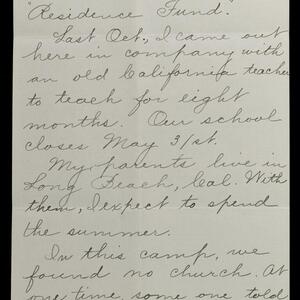 "Residence Fund."
Last Oct., I came out
here in company with
an old California teacher
to teach for eight
months. Our school
closes May 31st.
My parents live in
Long Beach, Cal. With
them, I expect to spend
the summer.
In this camp, we
found no church. At
one time, some one told